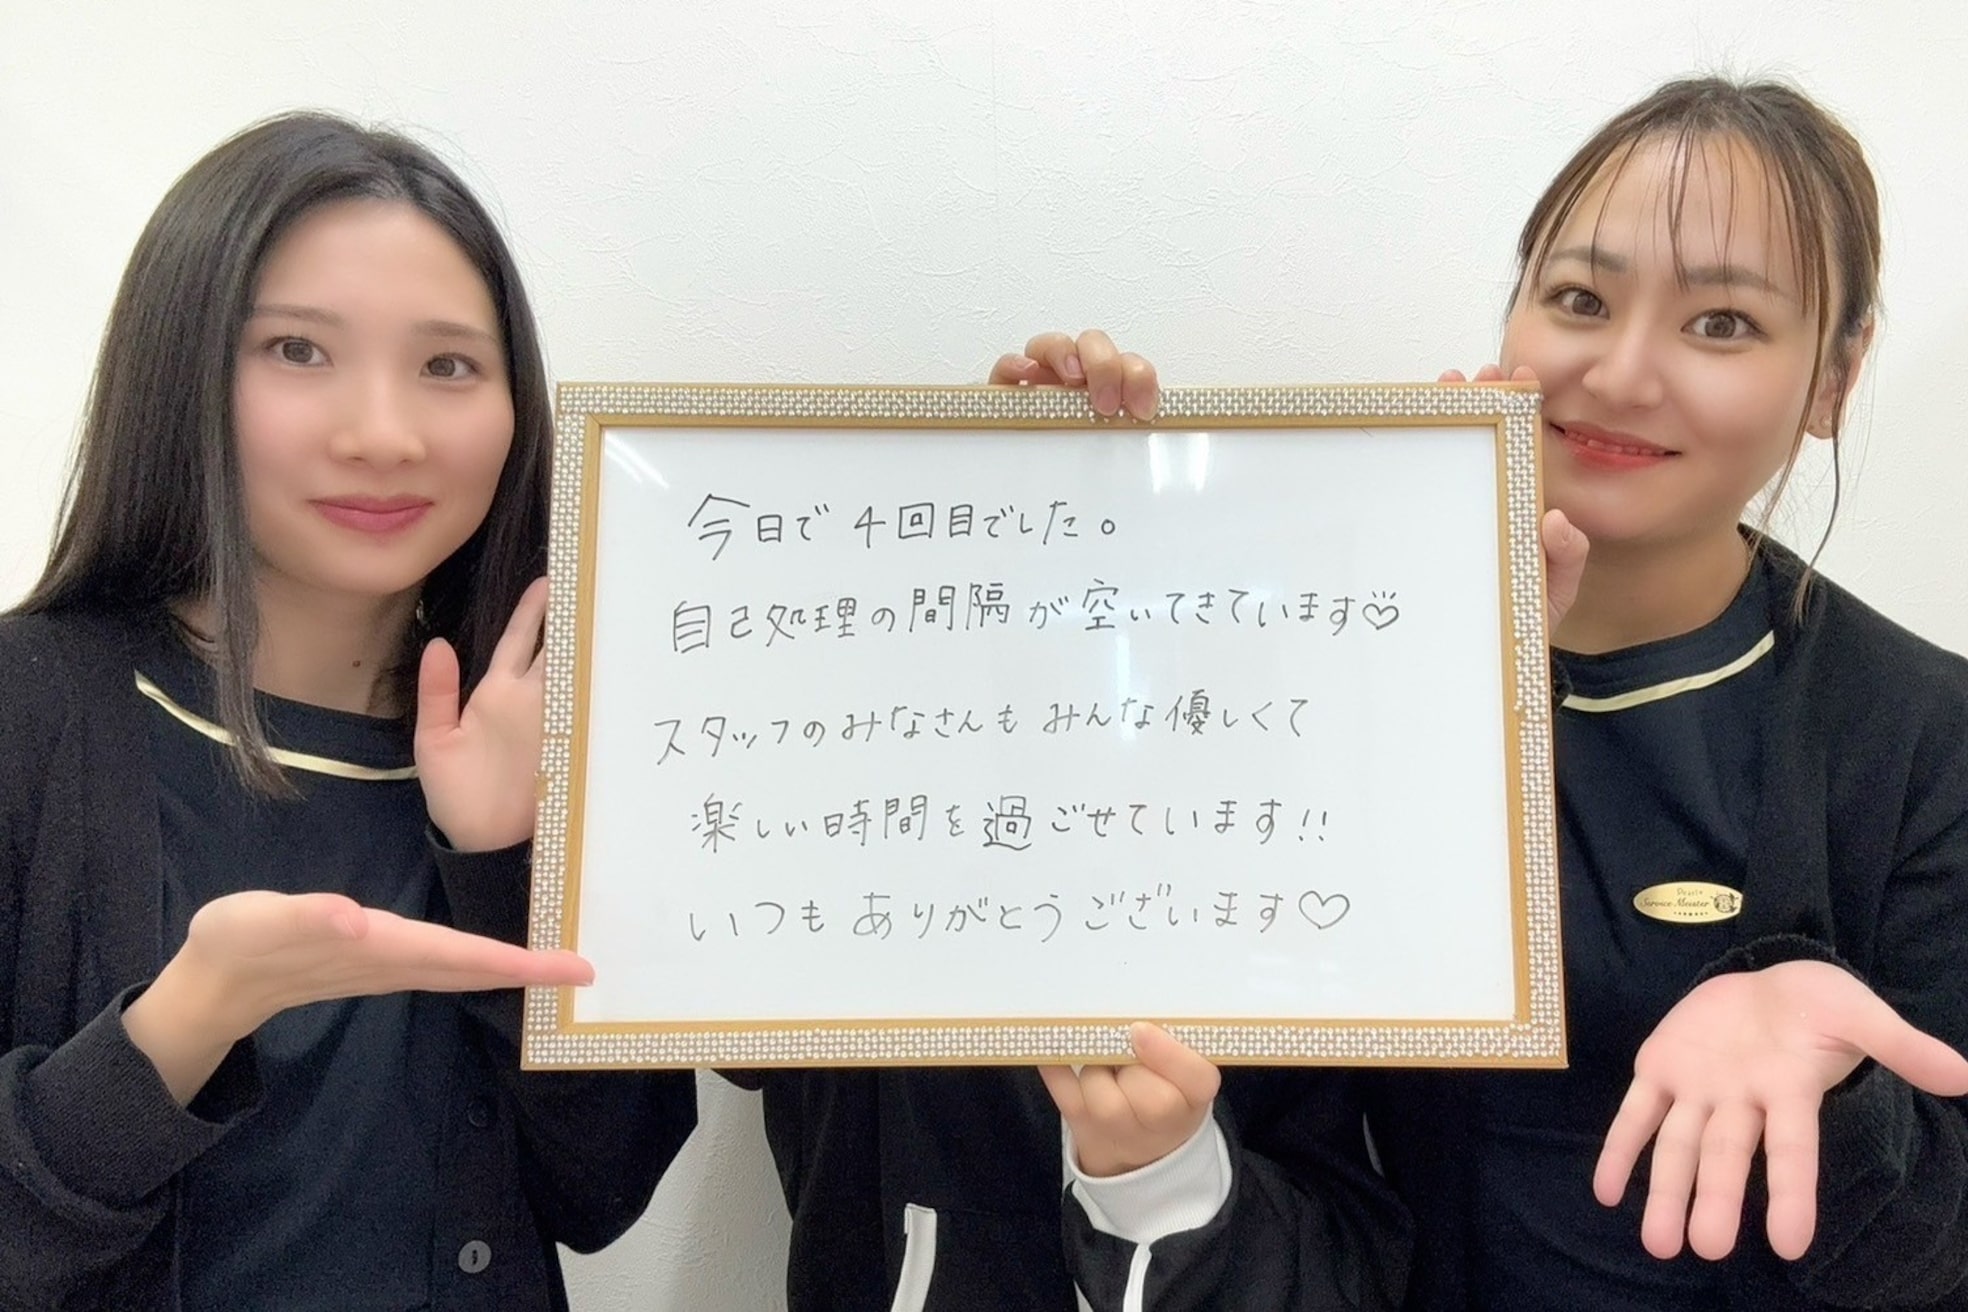 今日で4回目でした。
自己処理の間隔が空いてきています♡
スタッフのみなさんもみんな優しくて
楽しい時間を過ごせています!!
いつもありがとうございます♡
Service Meister